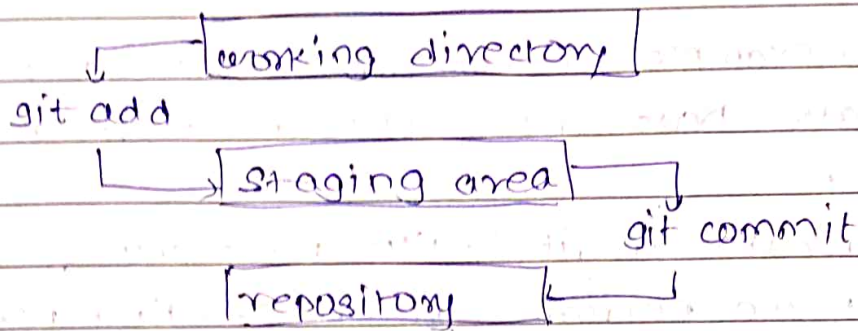 working directory
git add
staging area
git commit
repository